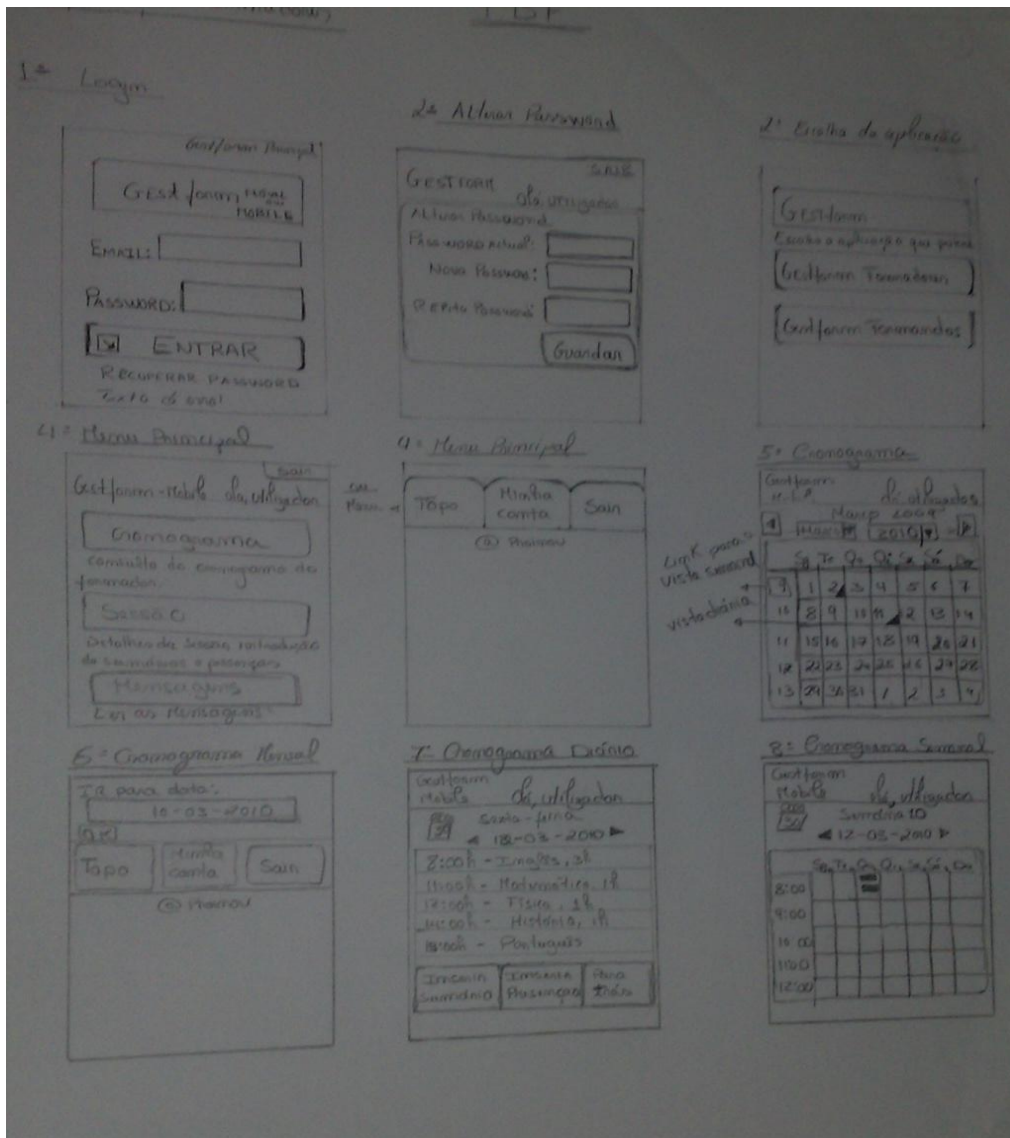 1º Login
Gestform
MOBILE
EMAIL:
PASSWORD:
ENTRAR
RECUPERAR PASSWORD
2º Alterar Password
SAIR
GESTFORM
olá, utilizador
Alterar Password
PASSWORD Actual:
Nova Password:
REPita Password
Guardar
Escolha da aplicação
Gestform
Escolha a aplicação que
Gestform Formadores
Gestform Formandos
4º Menu Principal
Sair
Gestform-Mobile olá, utilizador
Cronograma
consulta do cronograma do
formador
Sessão
Detalhes da Sessão, introdução
de sumários e presenças
Mensagens
Ler as Mensagens
ou
4º Menu Principal
Topo
Minha
conta
Sair
5º Cronograma
Gestform
olá, utilizador
Março 2009
Março 2010
Link para a
vista semanal
vista diária
Sg Te Qa Qi Sx Sá Do
9 1 2 3 4 5 6 7
10 8 9 10 11 12 13 14
11 15 16 17 18 19 20 21
12 22 23 24 25 26 27 28
13 29 30 31 1 2 3 4
6º Cronograma Mensal
IR para data:
10-03-2010
OK
Topo
Minha
conta
Sair
7º Cronograma Diário
Gestform
Mobile
olá, utilizador
Sexta-feira
12-03-2010
8:00h - Inglês, 3h
11:00h - Matemática, 1h
12:00h - Física, 1h
14:00h - História, 1h
- Português
Inserir
Sumário
Inserir
Presenças
Para
trás
8º Cronograma Semanal
Gestform
Mobile
olá, utilizador
Semana 10
12-03-2010
Sg Te Qa Qi Sx Sá Do
8:00
9:00
10:00
11:00
12:00